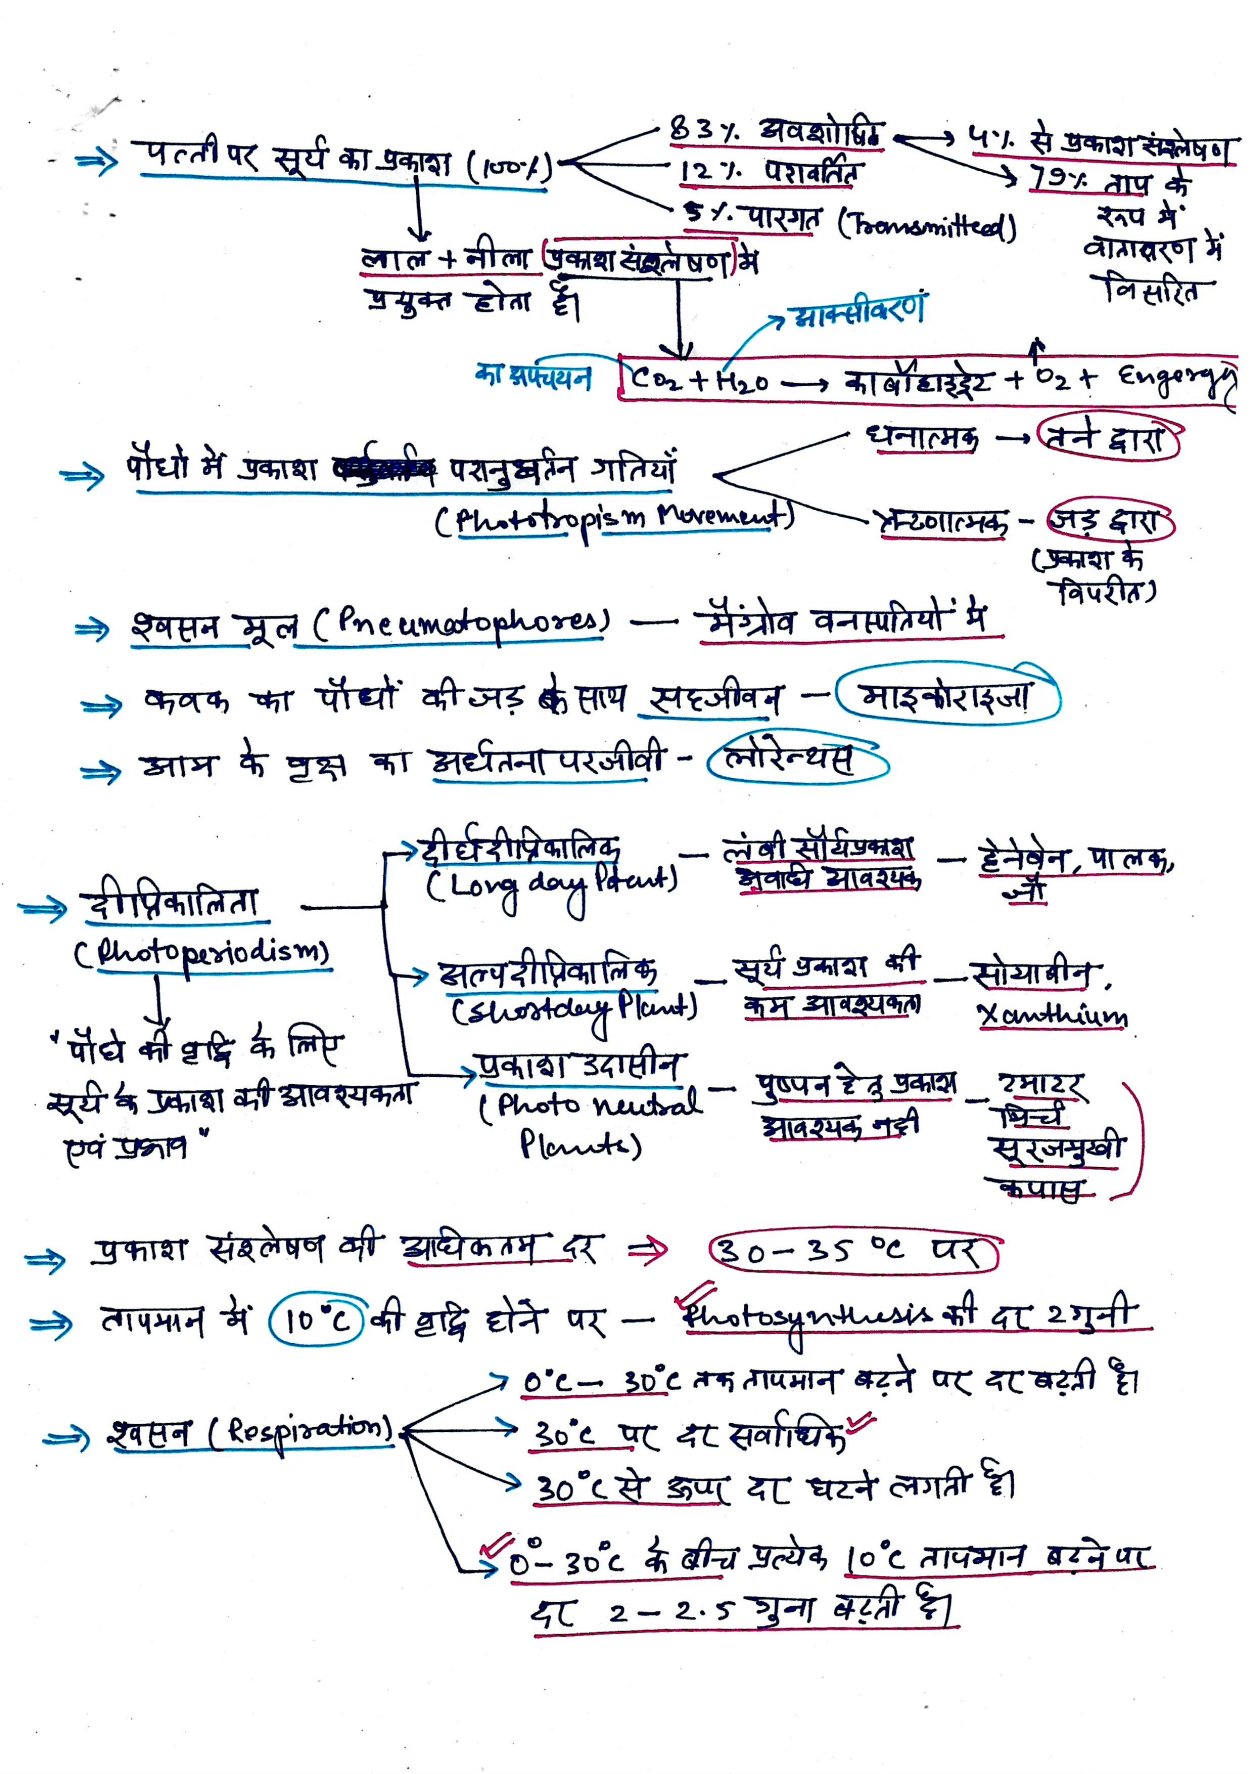 ⇒ पत्ती पर सूर्य का प्रकाश (100%)
83% अवशोषित → 4% से प्रकाश संश्लेषण
→ 79% ताप के
रूप में
वातावरण में
विसरित
12% परावर्तित
5% पारगत (Transmitteed)
लाल + नीला (प्रकाश संश्लेषण) में
प्रयुक्त होता है।
आक्सीकरण
का अपचयन
CO2 + H2O → कार्बोहाइड्रेट + O2↑ + Engergy
⇒ पौधो में प्रकाश परानुवर्तन गतियाँ
(Phototropism Movement)
धनात्मक → तने द्वारा
ऋणात्मक - जड़ द्वारा
(प्रकाश के
विपरीत)
⇒ श्वसन मूल (Pneumatophores) — मैंग्रोव वनस्पतियों में
⇒ कवक का पौधों की जड़ के साथ सहजीवन - माइकोराइजा
⇒ आम के वृक्ष का अर्धतना परजीवी - लोरेन्थस
⇒ दीप्तिकालिता
(Photoperiodism)
"पौधे की वृद्धि के लिए
सूर्य के प्रकाश की आवश्यकता
एवं प्रभाव"
→ दीर्घदीप्तिकालिक — लंबी सौर्यप्रकाश — हेनेबेन, पालक,
(Long day Plant) अवधि आवश्यक जौ
→ अल्पदीप्तिकालिक — सूर्य प्रकाश की — सोयाबीन,
(Shortday Plant) कम आवश्यकता Xanthium
→ प्रकाश उदासीन — पुष्पन हेतु प्रकाश — टमाटर
(Photo neutral आवश्यक नही मिर्च
Plants) सूरजमुखी
कपास
⇒ प्रकाश संश्लेषण की अधिकतम दर ⇒ 30-35°C पर
⇒ तापमान में 10°C की वृद्धि होने पर — Photosynthesis की दर 2 गुनी
⇒ श्वसन (Respiration)
→ 0°C — 30°C तक तापमान बढ़ने पर दर बढ़ती है।
→ 30°C पर दर सर्वाधिक
→ 30°C से ऊपर दर घटने लगती है।
→ 0°-30°C के बीच प्रत्येक 10°C तापमान बढ़ने पर
दर 2-2.5 गुना बढ़ती है।